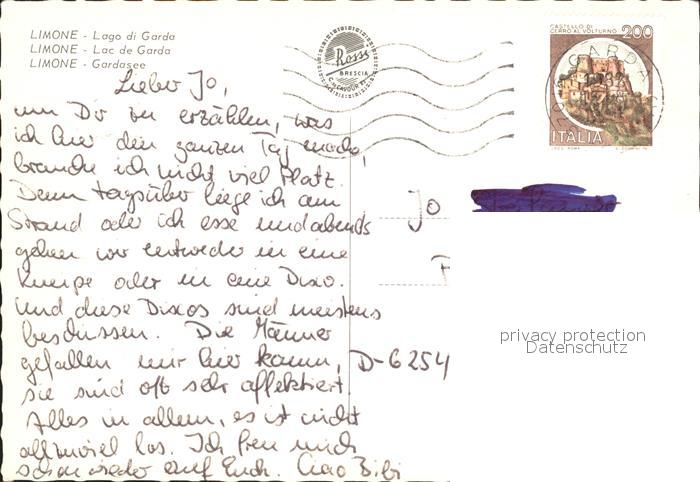 LIMONE - Lago di Garda
LIMONE - Lac de Garda
LIMONE - Gardasee
Rossi
BRESCIA
C.so CAVOUR
CASTELLO DI
CERRO AL VOLTURNO
200
GARDA
ITALIA
Lieber Jo,
um Dir zu erzählen, was
ich hier den ganzen Tag mache,
brauche ich nicht viel Platz.
Denn tagsüber liege ich am
Strand oder ich esse und abends
gehen wir entweder in eine
Kneipe oder in eine Disco.
Und diese Discos sind meistens
beschissen. Die Männer
gefallen mir hier kaum,
sie sind oft sehr affektiert.
Alles in allem, es ist nicht
allzuviel los. Ich freu mich
schon wieder auf Euch. Ciao Bibi
Jo
D-6254
privacy protection
Datenschutz